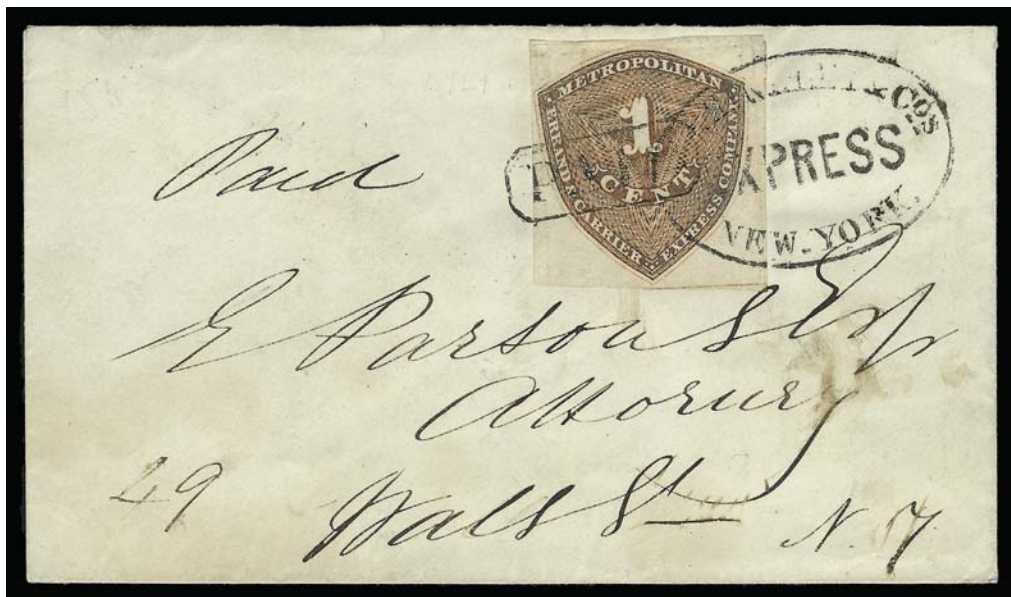 METROPOLITAN
ERRAND & CARRIER EXPRESS COMPANY
1
CENT
& Cos
EXPRESS
NEW-YORK.
Paid
E Parsons Esq
Attorney
49
Wall St
N. Y